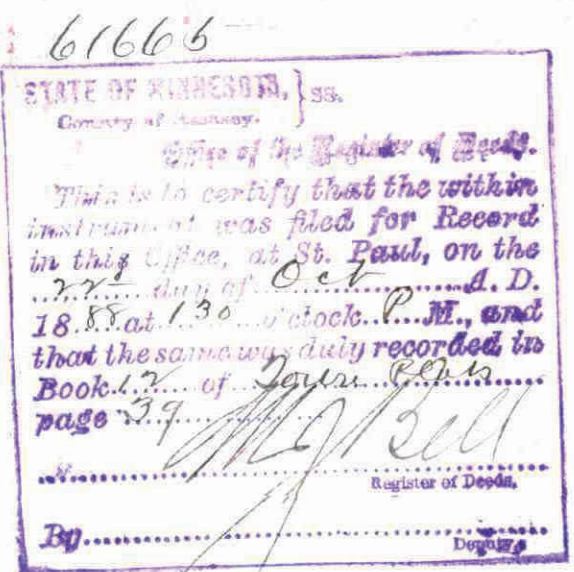 61665
STATE OF MINNESOTA, } ss.
County of Ramsey.
Office of the Register of Deeds.
This is to certify that the within
instrument was filed for Record
in this Office, at St. Paul, on the
22 day of Oct A. D.
1888 at 130 o'clock P. M., and
that the same was duly recorded in
Book 12 of Town Plats
page 39
M J Bell
Register of Deeds,
By
Deputy.